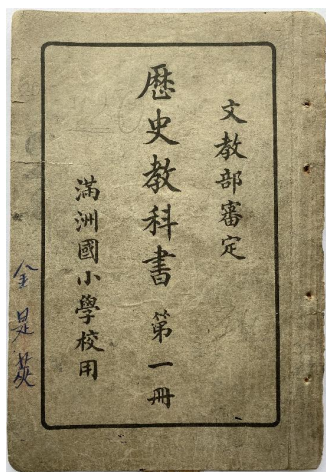 文教部審定
歷史教科書 第一冊
滿洲國小學校用
金是英